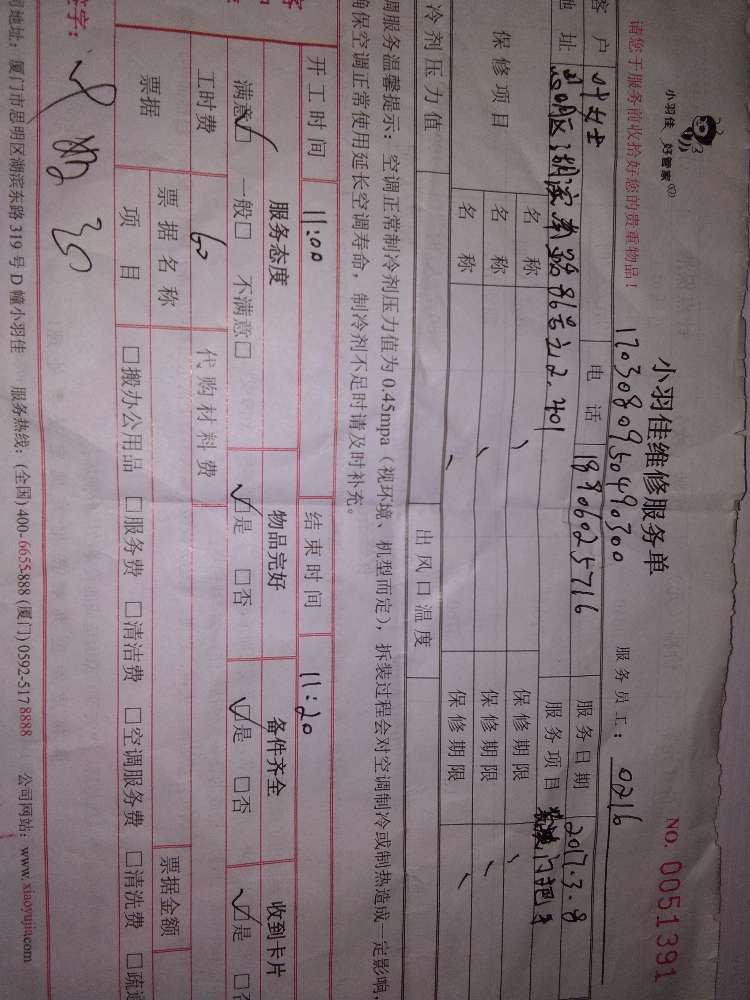 小羽佳 好管家
请您于服务前收拾好您的贵重物品!
小羽佳维修服务单
NO. 0051391
1703080950490300
服务员工: 0216
客户 叶女士 电话 18906025716 服务日期 2017.3.8
地址 思明区湖滨南路86号之2.401 服务项目 装门把手
保修项目 名称 保修期限
名称 保修期限
名称 保修期限
冷剂压力值 出风口温度
调服务温馨提示: 空调正常制冷剂压力值为 0.45mpa (视环境、机型而定), 拆装过程会对空调制冷或制热造成一定影响,
确保空调正常使用延长空调寿命, 制冷剂不足时请及时补充。
开工时间 11:00 结束时间 11:20
服务态度 物品完好 备件齐全 收到卡片
满意☑ 一般□ 不满意□ ☑是 □否 ☑是 □否 ☑是 □否
工时费 60 代购材料费
票据 票据名称 票据金额
项目 □搬办公用品 □服务费 □清洁费 □空调服务费 □清洗费 □疏通
签字:
司地址: 厦门市思明区湖滨东路 319 号 D 幢小羽佳 服务热线: (全国) 400-6655-888 (厦门) 0592-517 8888 公司网站: www.xiaoyujia.com